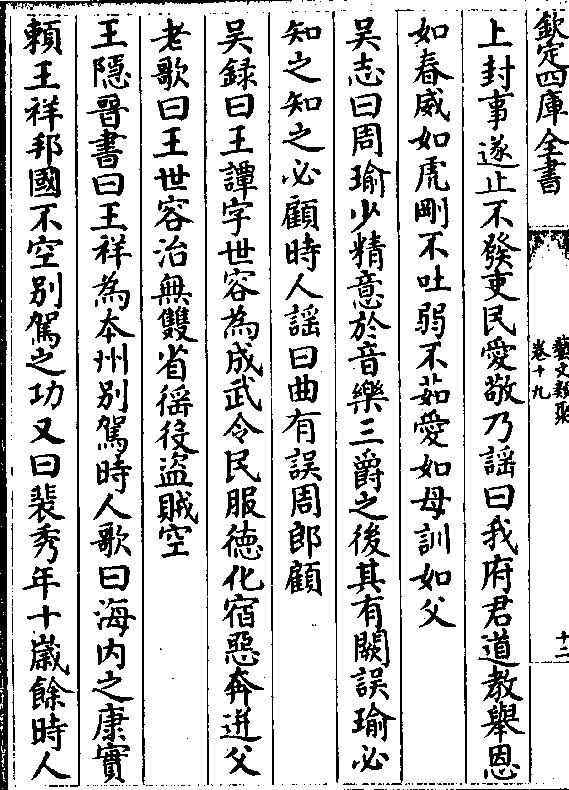 欽定四庫全書
藝文類聚
卷十九
十二
上封事遂止不發吏民愛敬乃謡曰我府君道教舉恩
如春威如虎剛不吐弱不茹愛如母訓如父
吴志曰周瑜少精意於音樂三爵之後其有闕誤瑜必
知之知之必顧時人謡曰曲有誤周郎顧
吴録曰王譚字世容為成武令民服徳化宿惡奔迸父
老歌曰王世容治無雙省徭役盜賊空
王隱晉書曰王祥為本州别駕時人歌曰海内之康實
頼王祥邦國不空别駕之功又曰裴秀年十歳餘時人